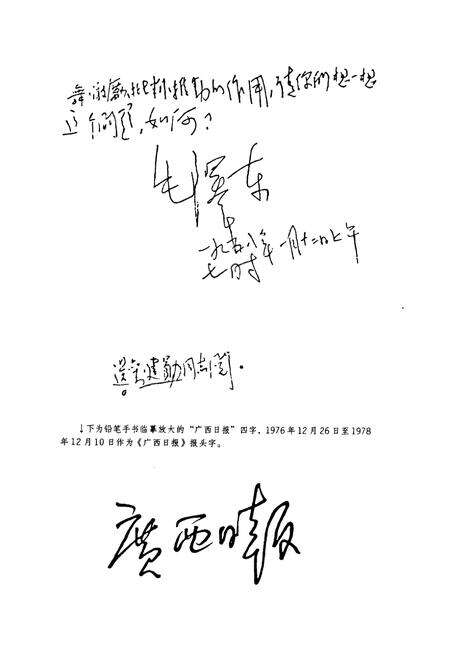 舞、激励、批判、推动的作用,请你们想一想
这个问题,如何?
毛澤东
一九五八年一月十二日上午
七时
建勋同志阅。
↓下为铅笔手书临摹放大的“广西日报”四字,1976年12月26日至1978
年12月10日作为《广西日报》报头字。
廣西日報